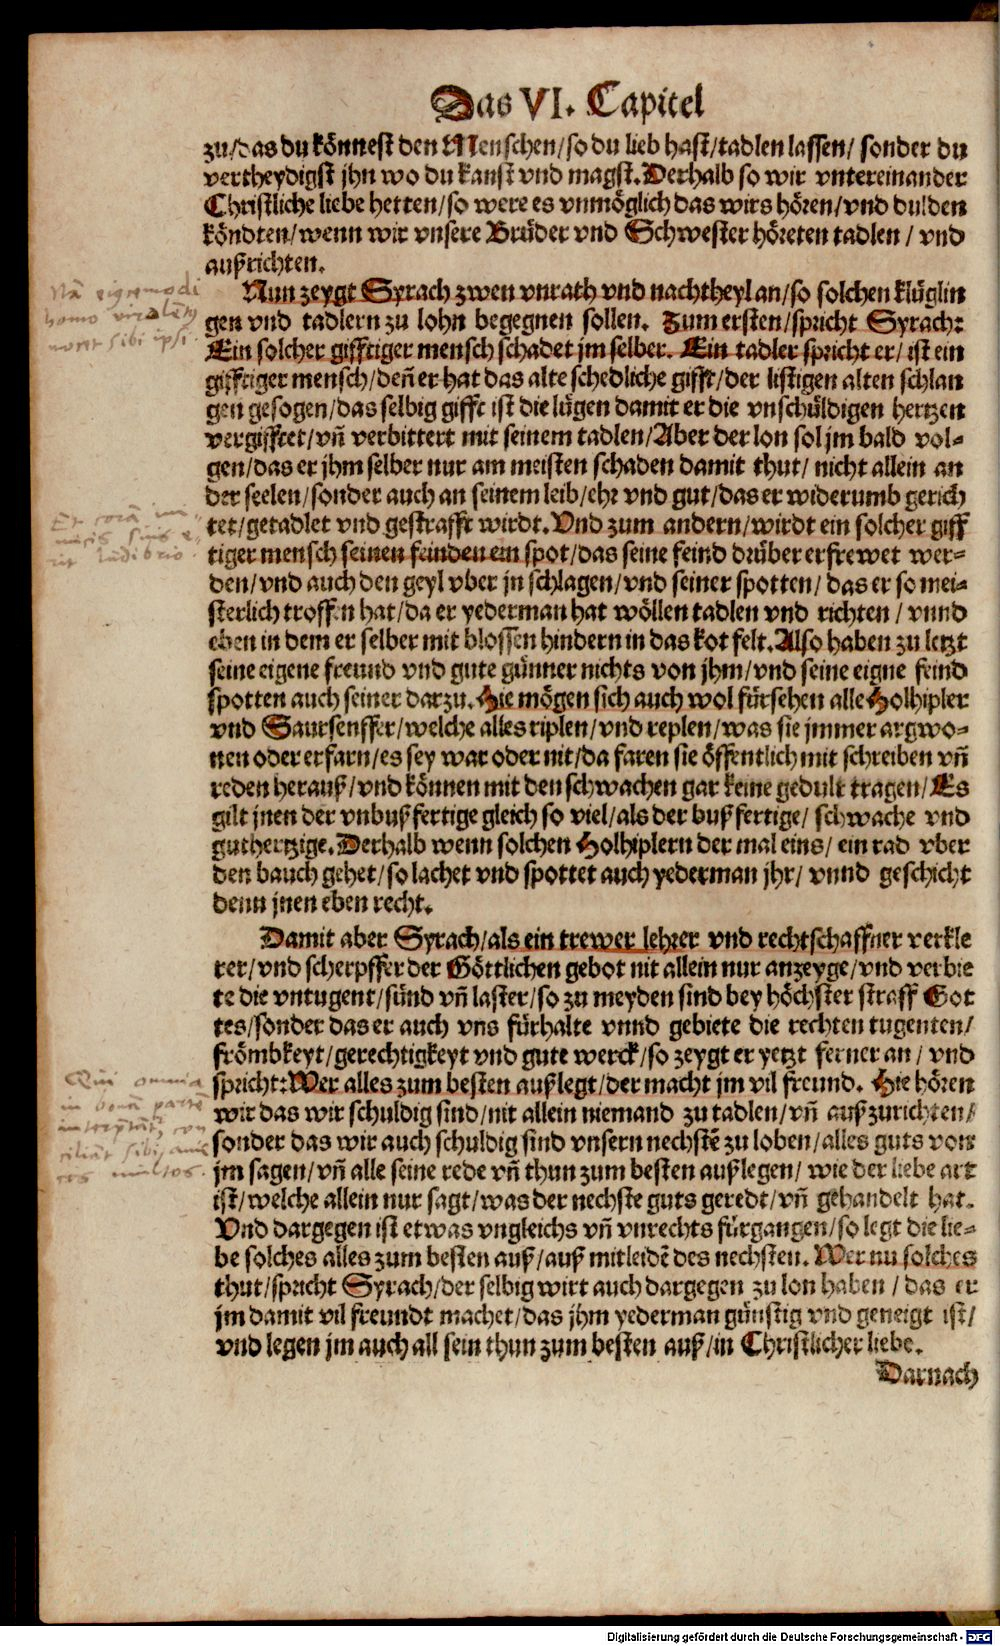 Das VI. Capitel
zu/das du könnest den Menschen/so du lieb hast/tadlen lassen/ sonder du
vertheydigst jhn wo du kanst vnd magst. Derhalb so wir vntereinander
Christliche liebe hetten/so were es vnmöglich das wirs hören/vnd dulden
köndten/wenn wir vnsere Brüder vnd Schwester höreten tadlen / vnd
außrichten.
Nun zeygt Syrach zwen vnrath vnd nachtheyl an/so solchen klüglin
gen vnd tadlern zu lohn begegnen sollen. Zum ersten/spricht Syrach:
Ein solcher gifftiger mensch schadet jm selber. Ein tadler spricht er/ ist ein
gifftiger mensch/deñ er hat das alte schedliche gifft/der listigen alten schlan
gen gesogen/das selbig gifft ist die lügen damit er die vnschüldigen hertzen
vergifftet/vñ verbittert mit seinem tadlen/Aber der lon sol jm bald vol-
gen/das er jhm selber nur am meisten schaden damit thut/ nicht allein an
der seelen/sonder auch an seinem leib/ehr vnd gut/das er widerumb gerich
tet/getadlet vnd gestrafft wirdt. Vnd zum andern/wirdt ein solcher giff
tiger mensch seinen feinden ein spot/das seine feind drüber erfrewet wer-
den/vnd auch den geyl vber jn schlagen/vnd seiner spotten/ das er so mei-
sterlich troffen hat/da er yederman hat wöllen tadlen vnd richten / vnnd
eben in dem er selber mit blossen hindern in das kot felt. Also haben zu letzt
seine eigene freund vnd gute günner nichts von jhm/vnd seine eigne feind
spotten auch seiner darzu. Hie mögen sich auch wol fürsehen alle Holhipler
vnd Saursenffer/welche alles riplen/vnd replen/was sie jmmer argwo-
nen oder erfarn/es sey war oder nit/da faren sie öffentlich mit schreiben vñ
reden herauß/vnd können mit den schwachen gar keine gedult tragen/Es
gilt jnen der vnbußfertige gleich so viel/als der bußfertige/ schwache vnd
guthertzige. Derhalb wenn solchen Holhiplern der mal eins/ ein rad vber
den bauch gehet/so lachet vnd spottet auch yederman jhr/ vnnd geschicht
denn jnen eben recht.
Damit aber Syrach/als ein trewer lehrer vnd rechtschaffner verkle
rer/vnd scherpffer der Göttlichen gebot nit allein nur anzeyge/vnd verbie
te die vntugent/sünd vñ laster/so zu meyden sind bey höchster straff Got
tes/sonder das er auch vns fürhalte vnnd gebiete die rechten tugenten/
frömbkeyt/gerechtigkeyt vnd gute werck/so zeygt er yetzt ferner an / vnd
spricht:Wer alles zum besten außlegt/der macht jm vil freund. Hie hören
wir das wir schuldig sind/nit allein niemand zu tadlen/vñ auß zurichten/
sonder das wir auch schuldig sind vnsern nechstẽ zu loben/alles guts von
jm sagen/vñ alle seine rede vñ thun zum besten außlegen/ wie der liebe art
ist/welche allein nur sagt/was der nechste guts geredt/vñ gehandelt hat.
Vnd dargegen ist etwas vngleichs vñ vnrechts fürgangen/so legt die lie-
be solches alles zum besten auß/auß mitleidẽ des nechsten. Wer nu solches
thut/spricht Syrach/der selbig wirt auch dargegen zu lon haben / das er
jm damit vil freundt machet/das jhm yederman günstig vnd geneigt ist/
vnd legen jm auch all sein thun zum besten auß/in Christlicher liebe.
Darnach
Nã eigsmodi
homo virulẽtꝰ
nocet sibi ipsi.
Et corã ini-
micis suis e-
rit ludibrio
Qui omnia
in bonã partẽ
interp̃tat̃, con
ciliat sibi ami
cos multos.
Digitalisierung gefördert durch die Deutsche Forschungsgemeinschaft - DFG